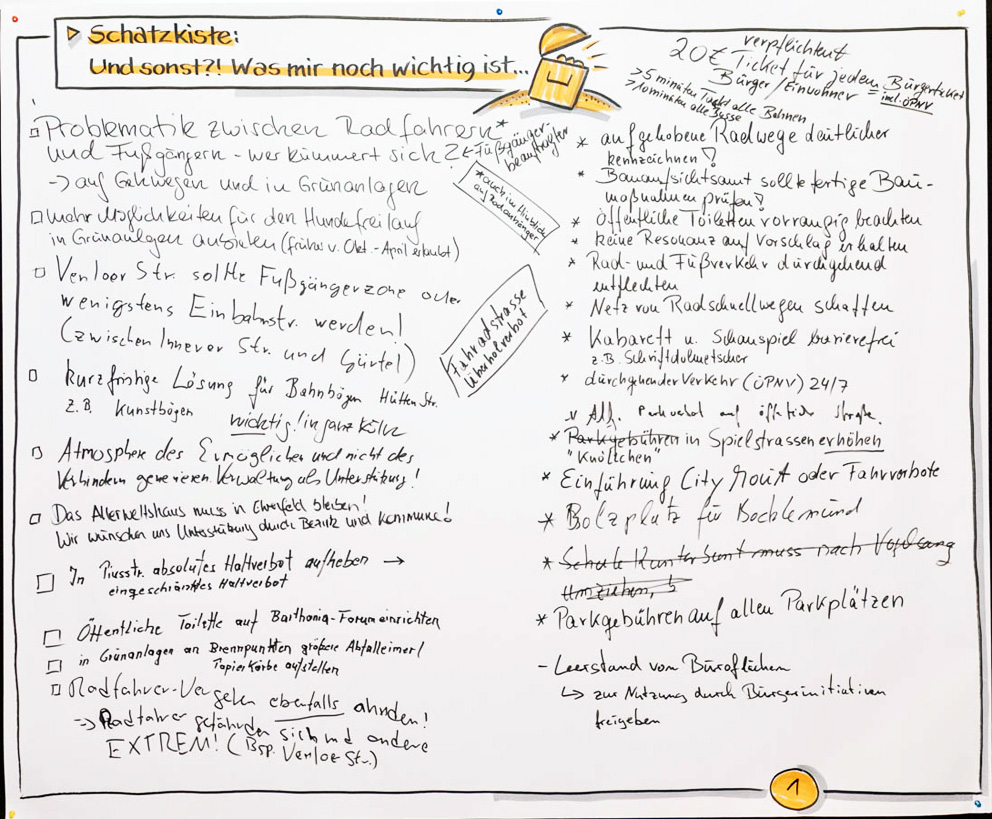 Schatzkiste:
Und sonst?! Was mir noch wichtig ist...
Problematik zwischen Radfahrern*
und Fußgängern - wer kümmert sich? ← Fußgänger-
beauftragter
-> auf Gehwegen und in Grünanlagen
* auch im Hinblick
auf Radanhänger
mehr Möglichkeiten für den Hundefreilauf
in Grünanlagen (früher v. Okt. - April erlaubt)
Venloer Str. sollte Fußgängerzone oder
wenigstens Einbahnstr. werden!
(zwischen Innerer Str. und Gürtel)
Fahradstrasse
Überholverbot
kurzfristige Lösung für Bahnbögen Hütten Str.
z.B. Kunstbögen
wichtig! in ganz Köln
Atmosphere des Ermöglichen und nicht des
Verhindern generieren. Verwaltung als Unterstützung!
Das Allerweltshaus muss in Ehrenfeld bleiben!
Wir wünschen uns Unterstützung durch Bezirk und Kommune!
In Piusstr. absolutes Haltverbot aufheben →
eingeschränktes Haltverbot
Öffentliche Toilette auf Barthonia-Forum einrichten
in Grünanlagen an Brennpunkten größere Abfalleimer/
Papierkörbe aufstellen
Radfahrer-Vergehen ebenfalls ahnden!
=> Radfahrer gefährden sich und andere
EXTREM! (Bsp. Venloe Str.)
verpflichtent
20€ Ticket für jedem
Bürger/Einwohner = Bürgerticket
incl. ÖPNV
> 5 minuten Takt alle Bahnen
> 10minuten alle Busse
* aufgehobene Radwege deutlicher
kennzeichnen!
* Bauaufsichtsamt sollte fertige Bau-
maßnahmen prüfen!
* Öffentliche Toiletten vorrangig beachten
* keine Resonanz auf Vorschlag erhalten
* Rad- und Fußverkehr durchgehend
entflechten
* Netz von Radschnellwegen schaffen
* Kabarett u. Schauspiel barierefrei
z.B. Schriftdolmetscher
* durchgehender Verkehr (ÖPNV) 24/7
auf
* Parkgebühren in Spielstrassen erhöhen
"Knöllchen"
* Einführung City Mout oder Fahrverbote
* Bolzplatz für Bocklemünd
* Schule Kunterbunt muss nach Vogelsang
umziehen,
* Parkgebühren auf allen Parkplätzen
- Leerstand von Büroflächen
↳ zur Nutzung durch Bürgerinitiativen
freigeben
1